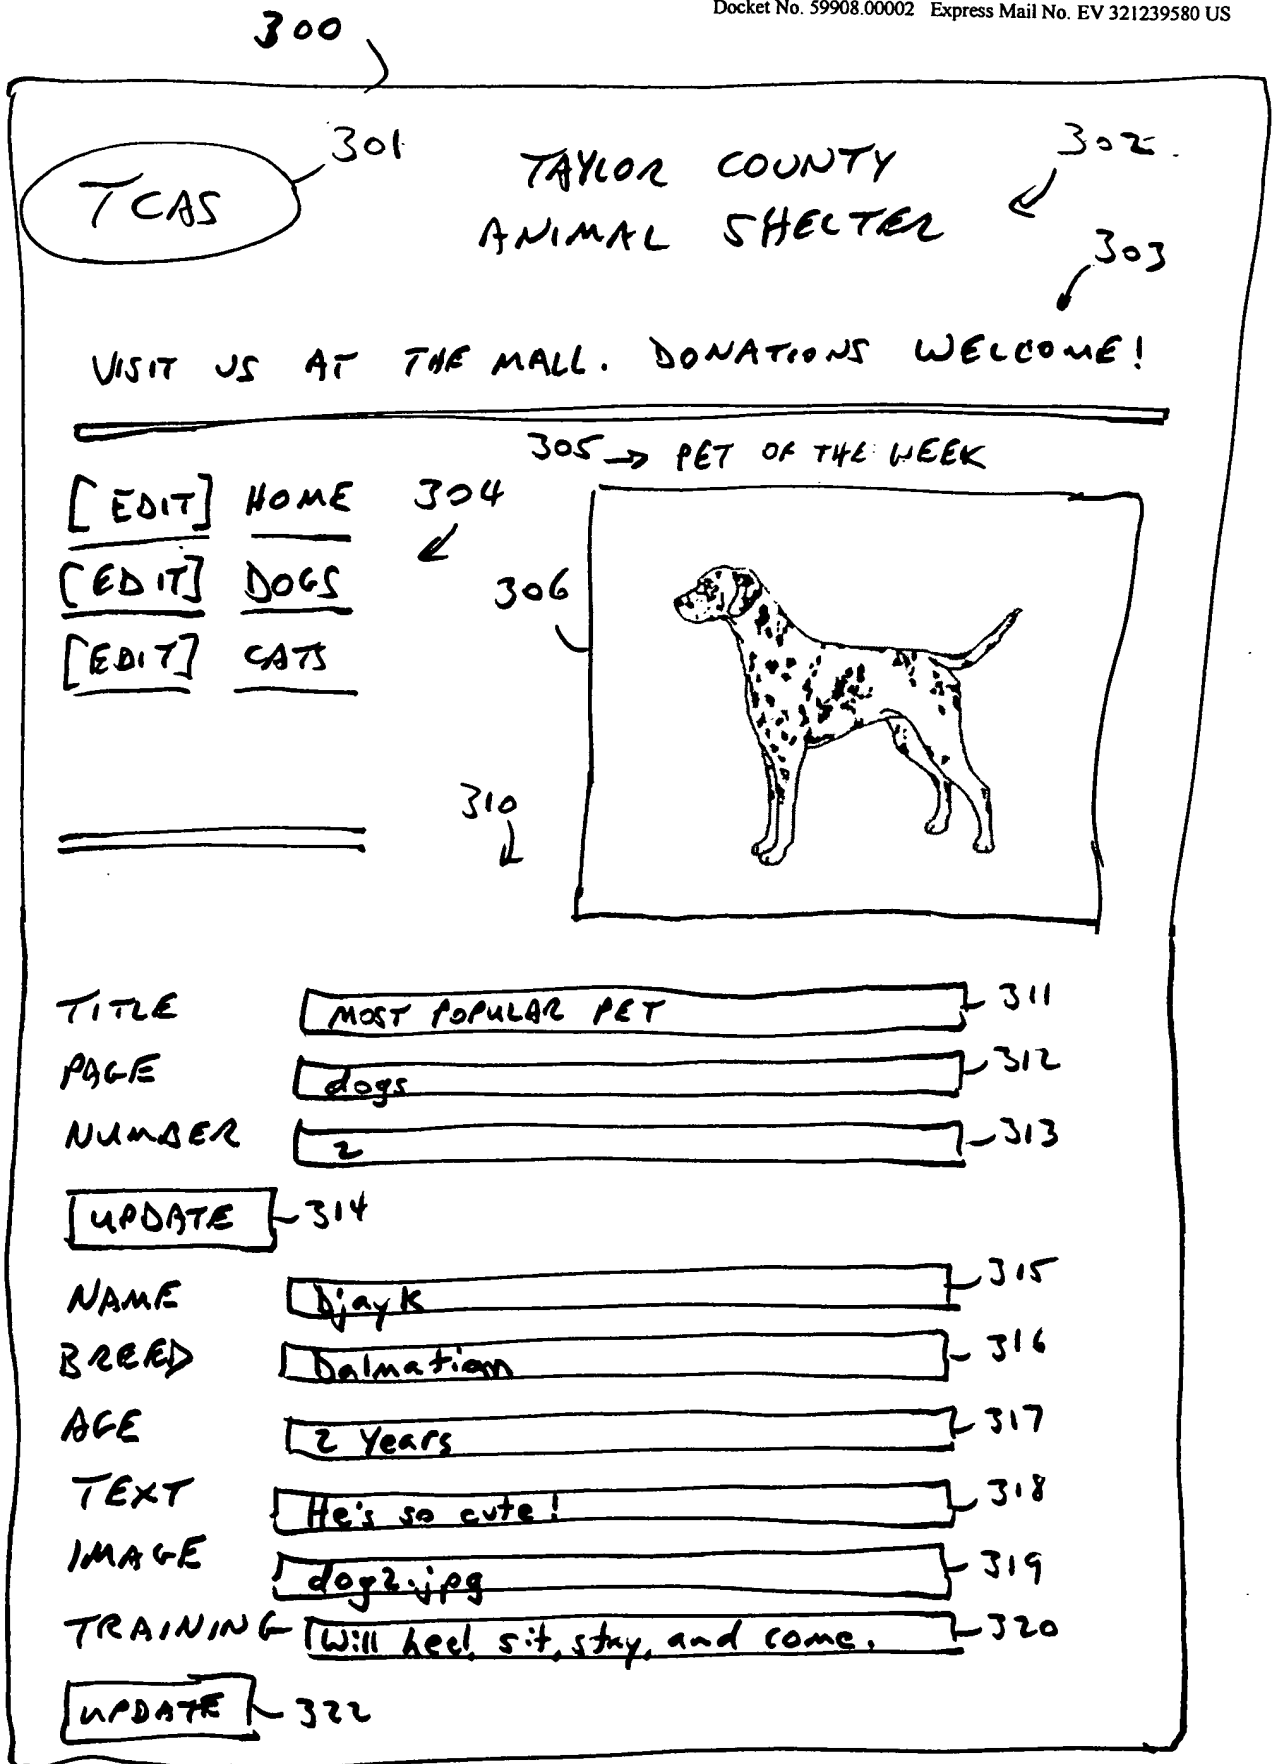 Docket No. 59908.00002 Express Mail No. EV 321239580 US
300
301
TCAS
TAYLOR COUNTY
ANIMAL SHELTER
302
303
VISIT US AT THE MALL. DONATIONS WELCOME!
305 PET OF THE WEEK
[EDIT] HOME
304
[EDIT] DOGS
306
[EDIT] CATS
310
TITLE MOST POPULAR PET 311
PAGE dogs 312
NUMBER 2 313
UPDATE 314
NAME Djayk 315
BREED Dalmation 316
AGE 2 Years 317
TEXT He's so cute! 318
IMAGE dog2.jpg 319
TRAINING Will heel, sit, stay, and come. 320
UPDATE 322